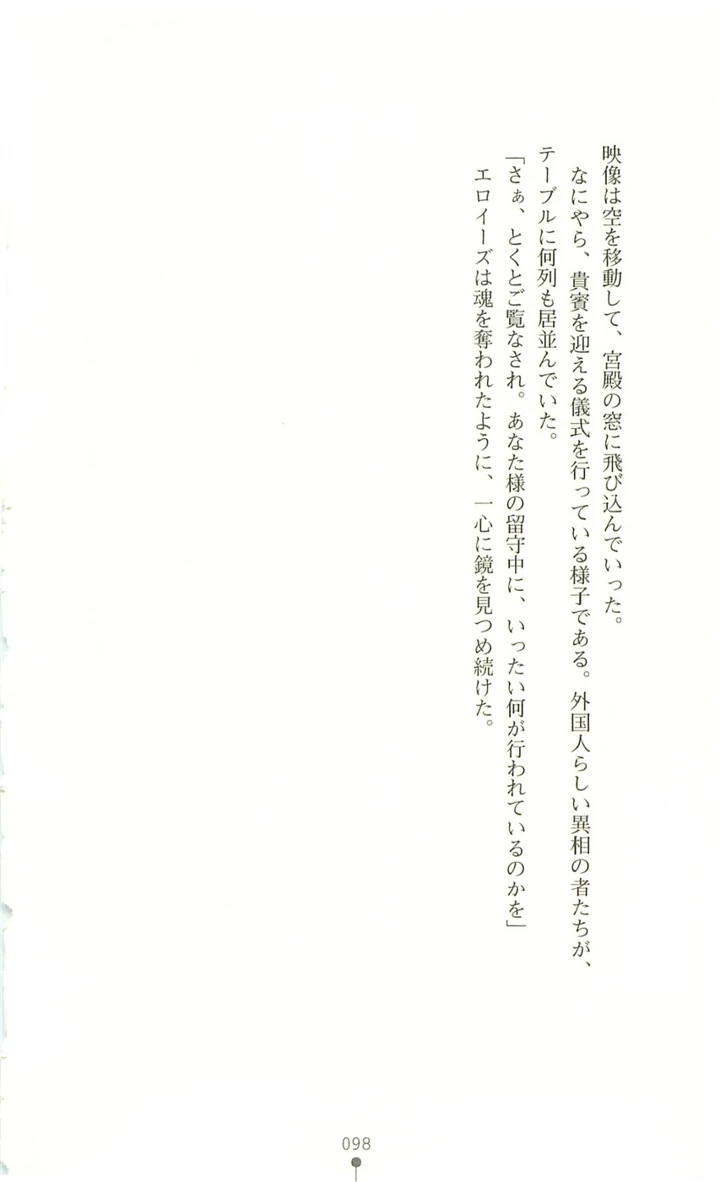 映像は空を移動して、宮殿の窓に飛び込んでいった。
なにやら、貴賓を迎える儀式を行っている様子である。外国人らしい異相の者たちが、
テーブルに何列も居並んでいた。
「さぁ、とくとご覧なされ。あなた様の留守中に、いったい何が行われているのかを」
エロイーズは魂を奪われたように、一心に鏡を見つめ続けた。
098